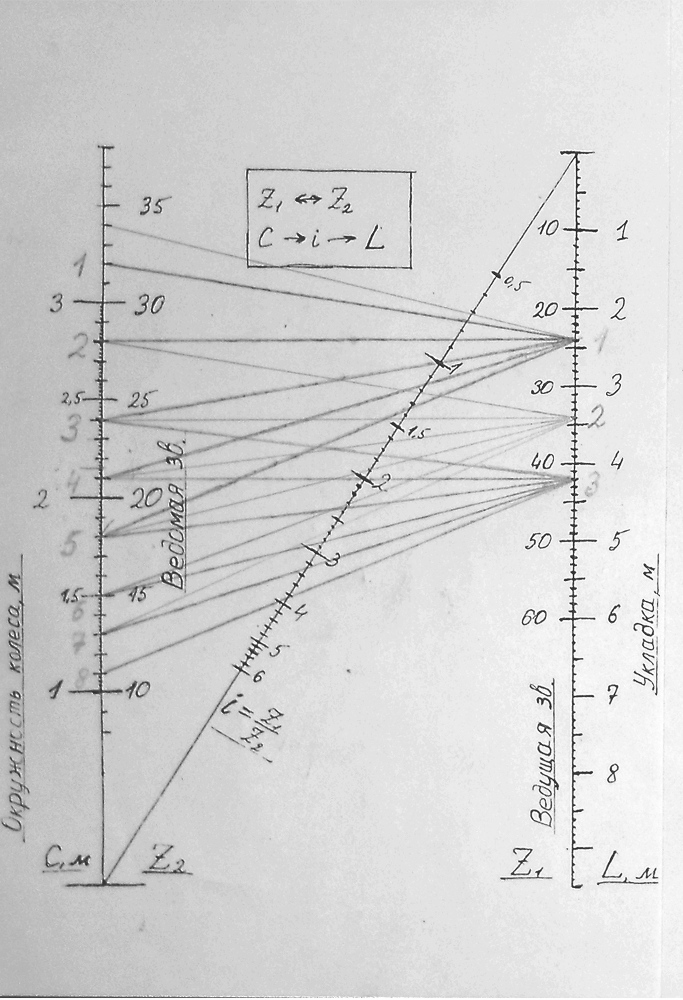 Z₁ ↔ Z₂
C → i → L
35
1
3
30
2
2,5
25
3
4
2
20
5
1,5
15
6
7
8
1
10
Окружность колеса, м
C, м
Z₂
Ведомая зв.
0,5
1
1,5
2
3
4
5
6
i = Z₁/Z₂
10
1
20
2
1
30
3
2
40
4
3
50
5
60
6
7
8
Ведущая зв
Укладка, м
Z₁
L, м